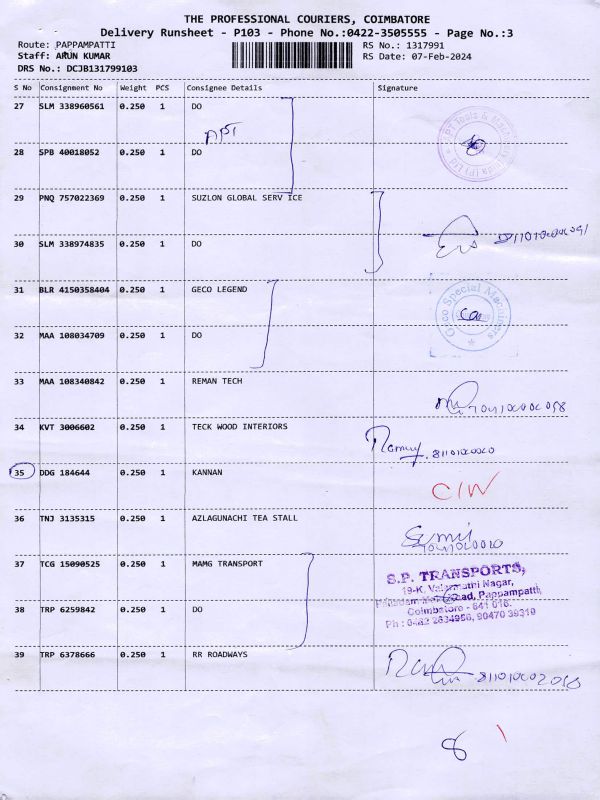 THE PROFESSIONAL COURIERS, COIMBATORE
Delivery Runsheet - P103 - Phone No.:0422-3505555 - Page No.:3
Route: PAPPAMPATTI RS No.: 1317991
Staff: ARUN KUMAR RS Date: 07-Feb-2024
DRS No.: DCJB131799103
S No Consignment No Weight PCS Consignee Details Signature
27 SLM 338960561 0.250 1 DO
APT
28 SPB 40018052 0.250 1 DO
29 PNQ 757022369 0.250 1 SUZLON GLOBAL SERV ICE
30 SLM 338974835 0.250 1 DO
31 BLR 4150358404 0.250 1 GECO LEGEND
Geco Special Machiners
32 MAA 108034709 0.250 1 DO
33 MAA 108340842 0.250 1 REMAN TECH
34 KVT 3006602 0.250 1 TECK WOOD INTERIORS
35 DDG 184644 0.250 1 KANNAN C/W
36 TNJ 3135315 0.250 1 AZLAGUNACHI TEA STALL
37 TCG 15090525 0.250 1 MAMG TRANSPORT
S.P. TRANSPORTS,
Nagar,
Pappampatti,
38 TRP 6259842 0.250 1 DO
Coimbatore - 641 016.
39 TRP 6378666 0.250 1 RR ROADWAYS
8